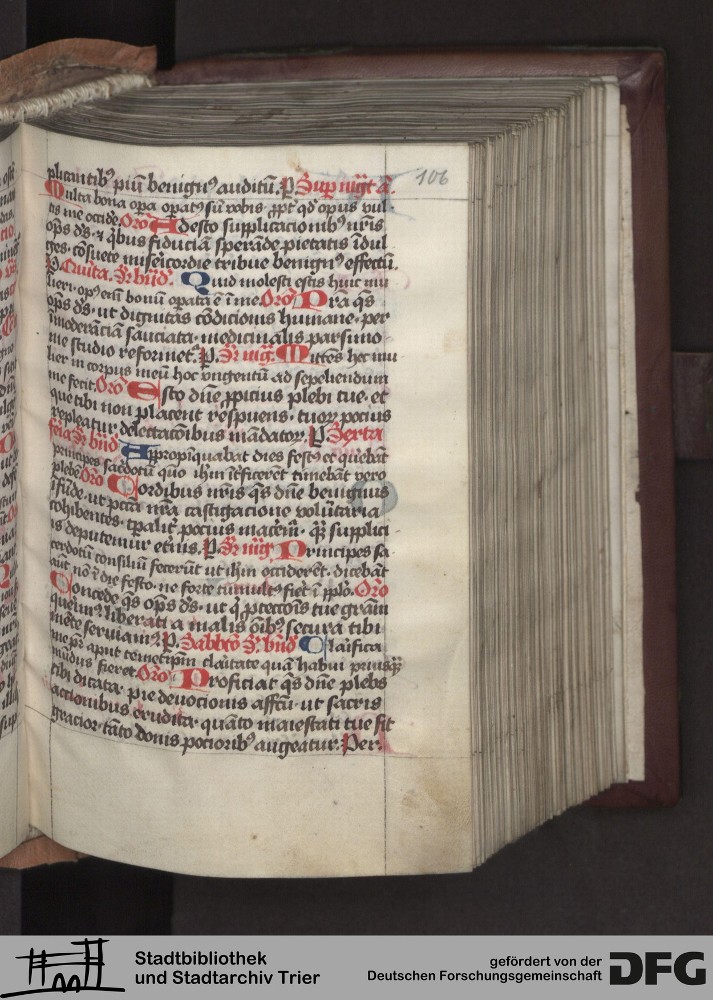 106
plicantib9 piũ benign9 auditũ. P Sup mgt a.
Multa bona opa opat9 sũ vobis. ꝓpt̃ qd̃ opus vul
tis me occide. Oro Adesto supplicacionib9 nr̃is
op̃s ds̃. ⁊ q̃bus fiduciã sperãde pietatis ĩdul
ges. cõsuete misericordie tribue benign9 effectũ.
P. Quita. Sr bñd. Quid molesti estis huic mu
lieri. op9 em̃ bonũ operata ẽ ĩ me. Oro Pra q̃s
op̃s ds̃. ut dignitas cõdicionis humane. per
ĩmoderãciã sauciata. medicinalis parsimo
nie studio reformet̃. P. Sr mg. Mittẽs hec mu
lier in corpus meũ hoc vngentũ ad sepeliendum
me fecit. Oro Esto dñe ꝓpicius plebi tue. et
que tibi non placent respuens. tuor pocius
repleatur delectacõibus mãdator. P Sexta
feia Sr bñd Appropiquabat dies fest9 et querebãt
principes sacerdotũ quo ihm ĩt̃ficerẽt timebãt vero
plebẽ Oro Cordibus nr̃is q̃s dñe benignus
ĩfũde. ut pctã nr̃a castigacione volũtaria
cohibentes. tp̃alit̃ pocius macẽm̃. q̃ supplici
is deputemur et̃nis. P Sr mg Principes sa
cerdotũ consiliũ fecerũt ut ihm occiderẽt. dicebãt
aut̃ nõ ĩ die festo. ne forte tumult9 fiet̃ ĩ pp̃lo. Oro
Concede q̃s op̃s ds̃. ut q̃ ꝓtecc̃ois tue grãm
querim9. liberati a malis õib9. secura tibi
mẽte seruiam9. P. Sabbto Sr bñd Clarifica
me pr̃ aput temetip̃m claritate quã habui priusq̃
mũdus fieret. Oro Proficiat q̃s dñe plebs
tibi dicata. pie deuocionis affcũ. ut sacris
actionibus erudita. quãto maiestati tue fit
gracior. tãto donis pociorib9 augeatur. Per.
Stadtbibliothek
und Stadtarchiv Trier
gefördert von der
Deutschen Forschungsgemeinschaft
DFG